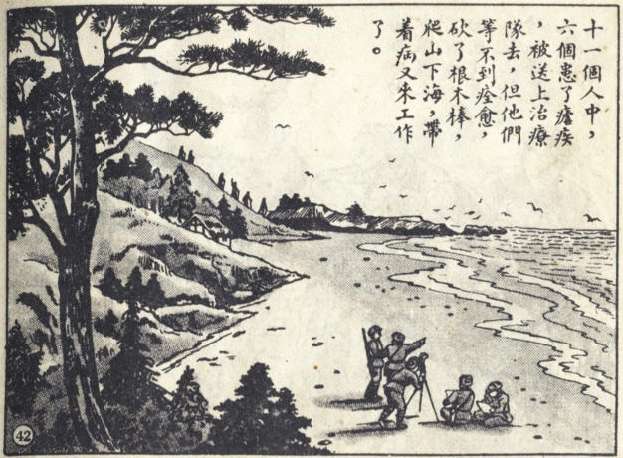 十一個人中，
六個患了瘧疾
，被送上治療
隊去，但他們
等不到痊愈，
砍了根木棒，
爬山下海，帶
着病又來工作
了。
42